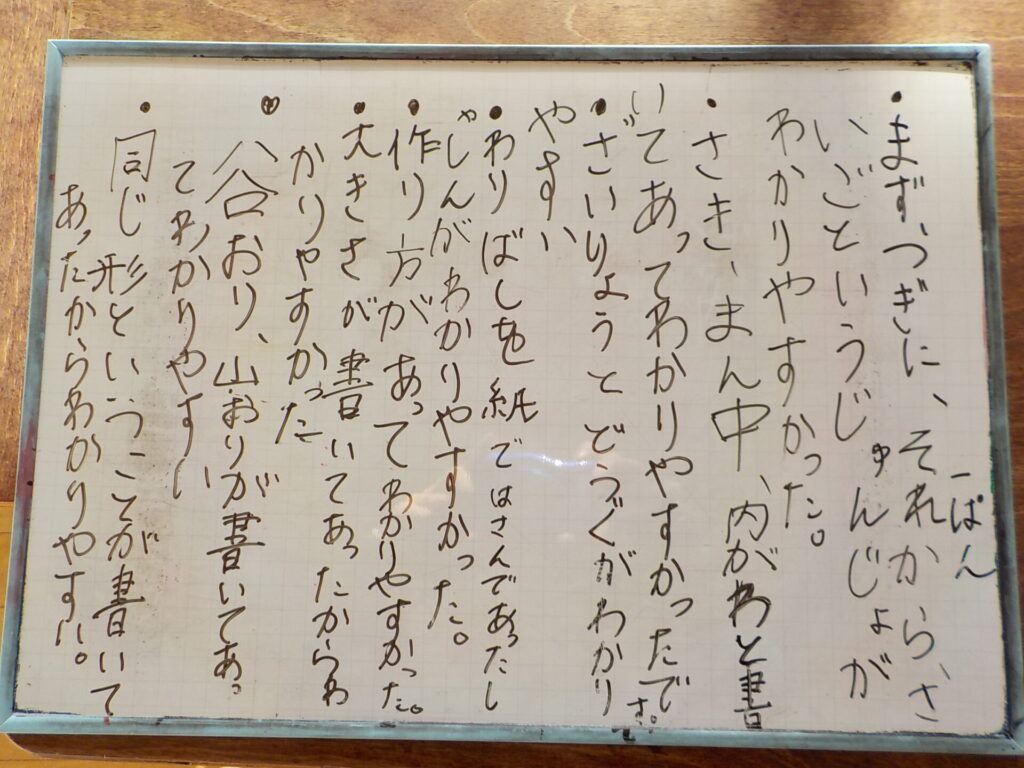 一ぱん
・まず、つぎに、それから、さ
いごというじゅんじょが
わかりやすかった。
・さき、まん中、内がわと書
いてあってわかりやすかったです。
・ざいりょうとどうぐがわかり
やすい
・わりばしを紙ではさんであったし
ゃしんがわかりやすかった。
・作り方があってわかりやすかった。
・大きさが書いてあったからわ
かりやすかった
・谷おり、山おりが書いてあっ
てわかりやすい
・同じ形ということが書いて
あったからわかりやすい。